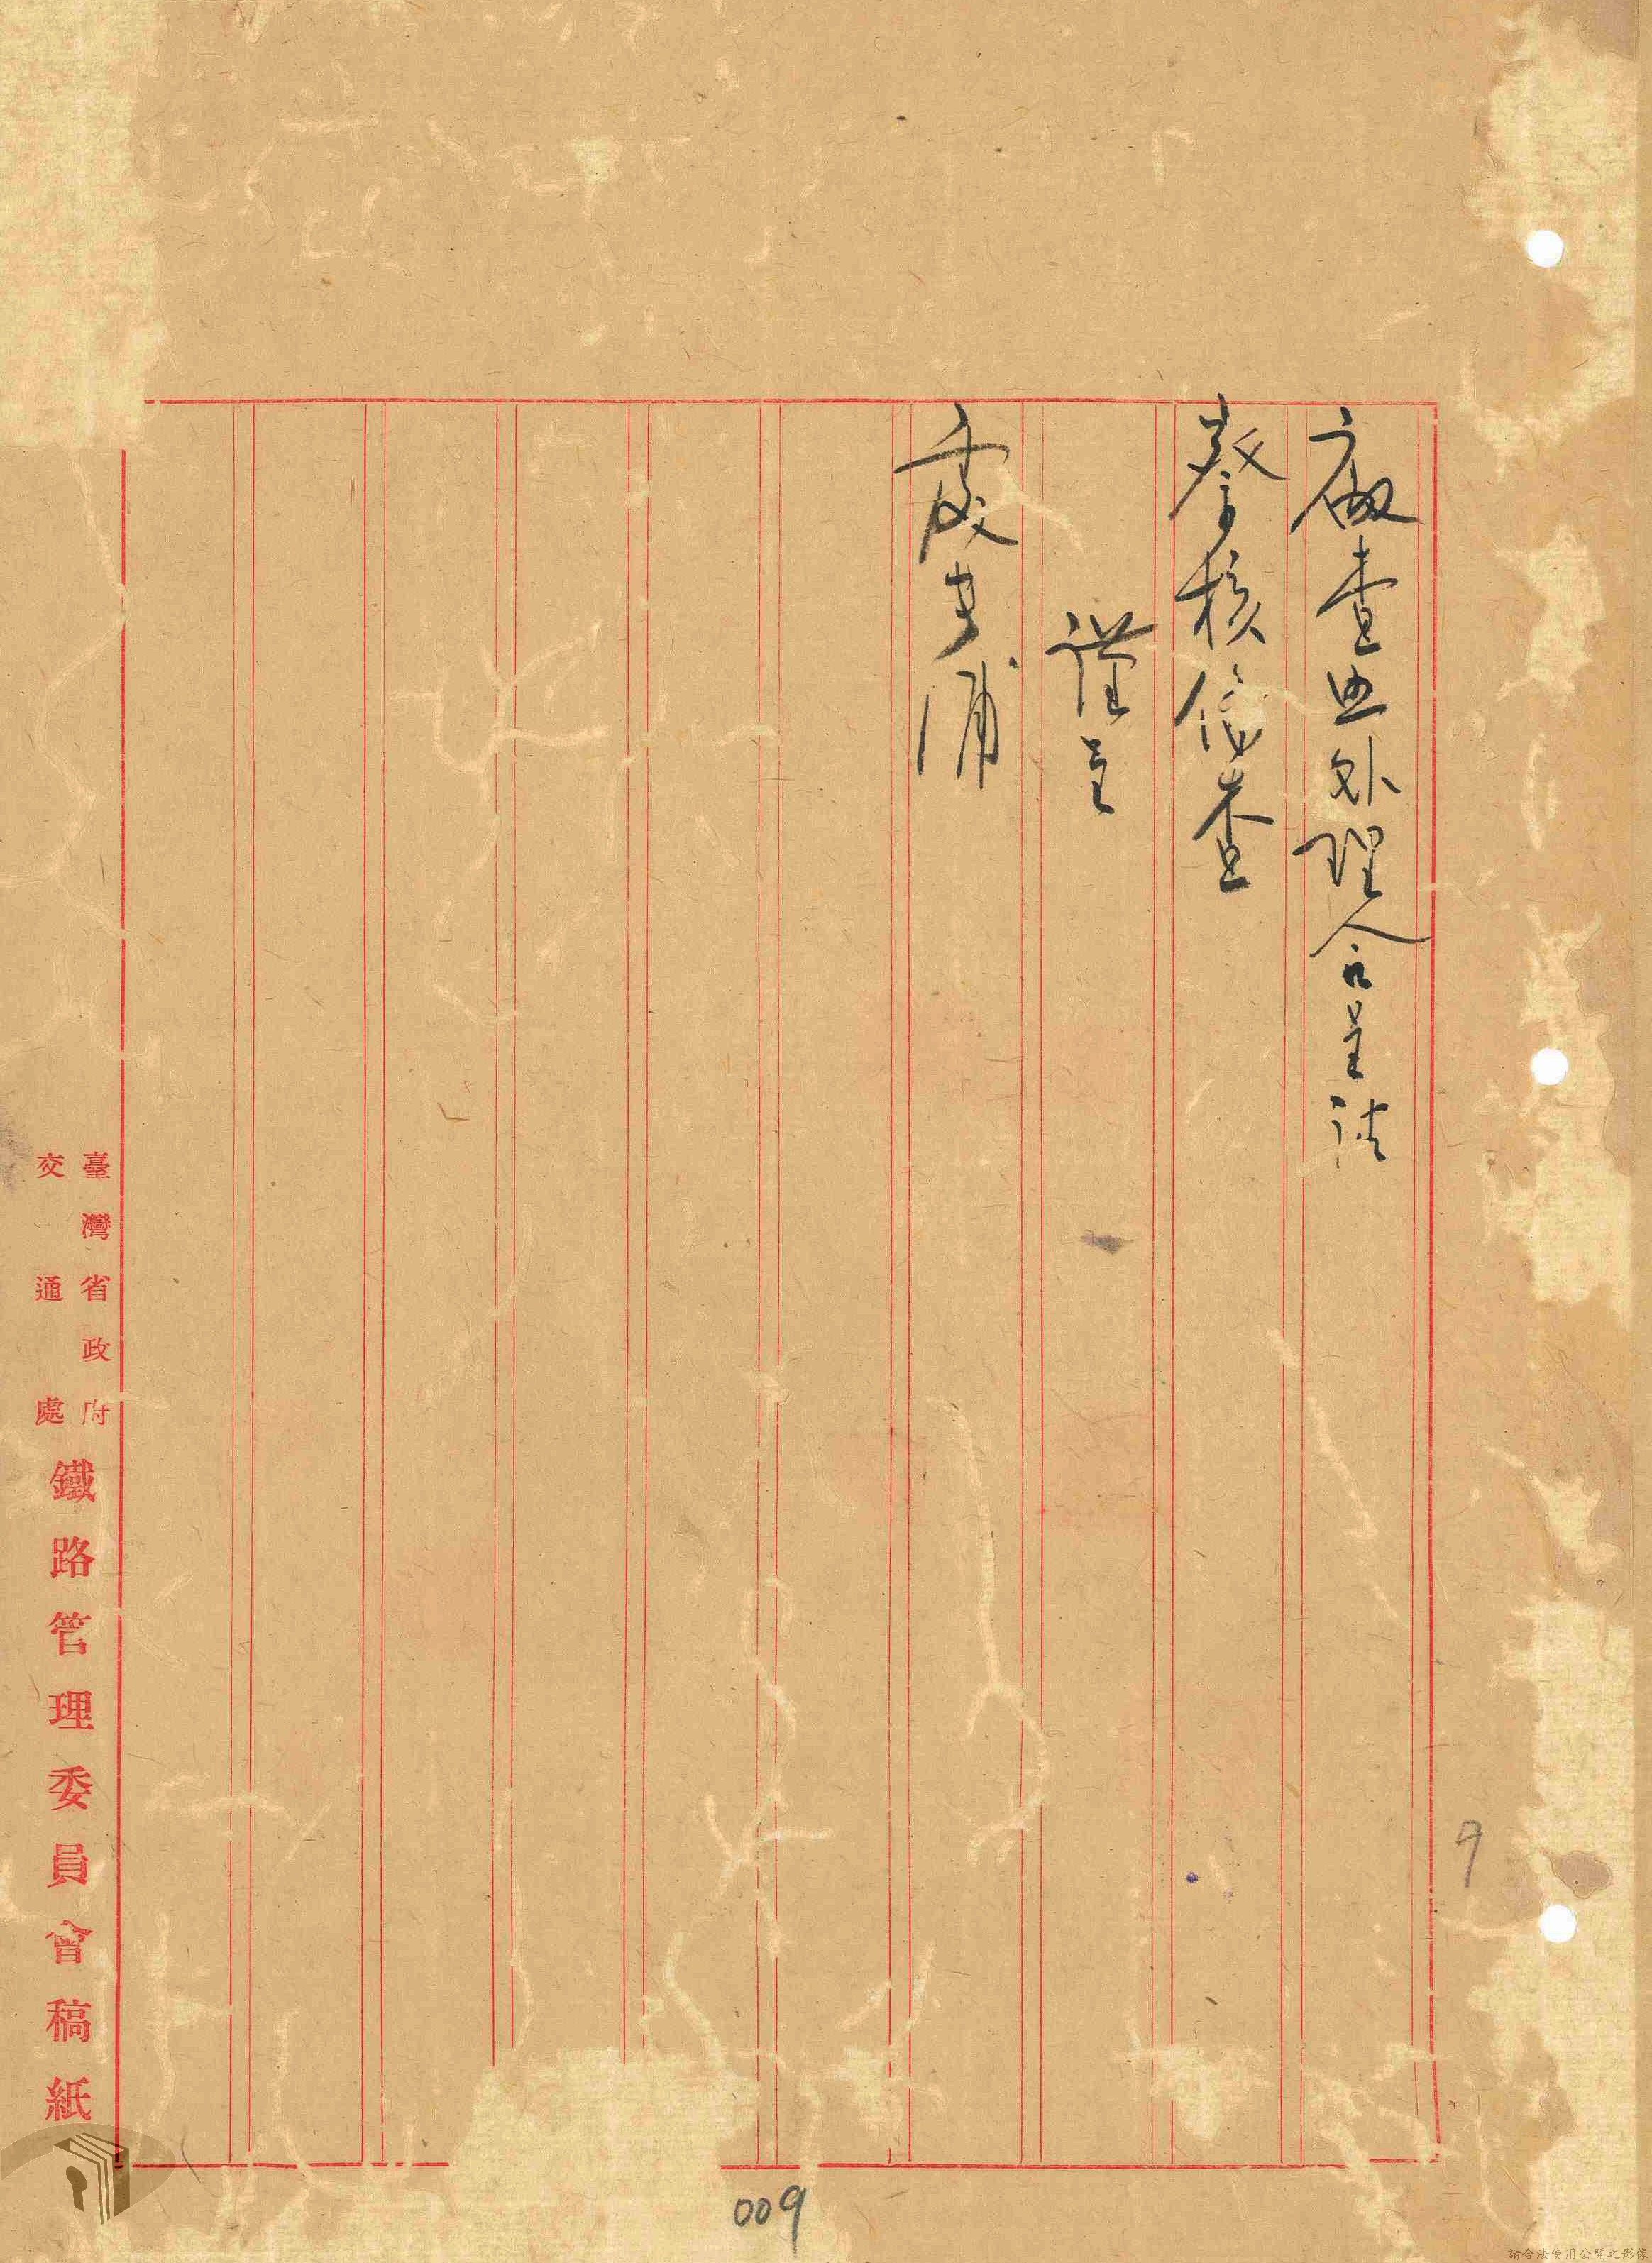 廠查照处理合呈請
詧核備查
謹呈
處長浦
臺灣省政府
交通處
鐵路管理委員會稿紙
9
009
請合法使用公開之影像